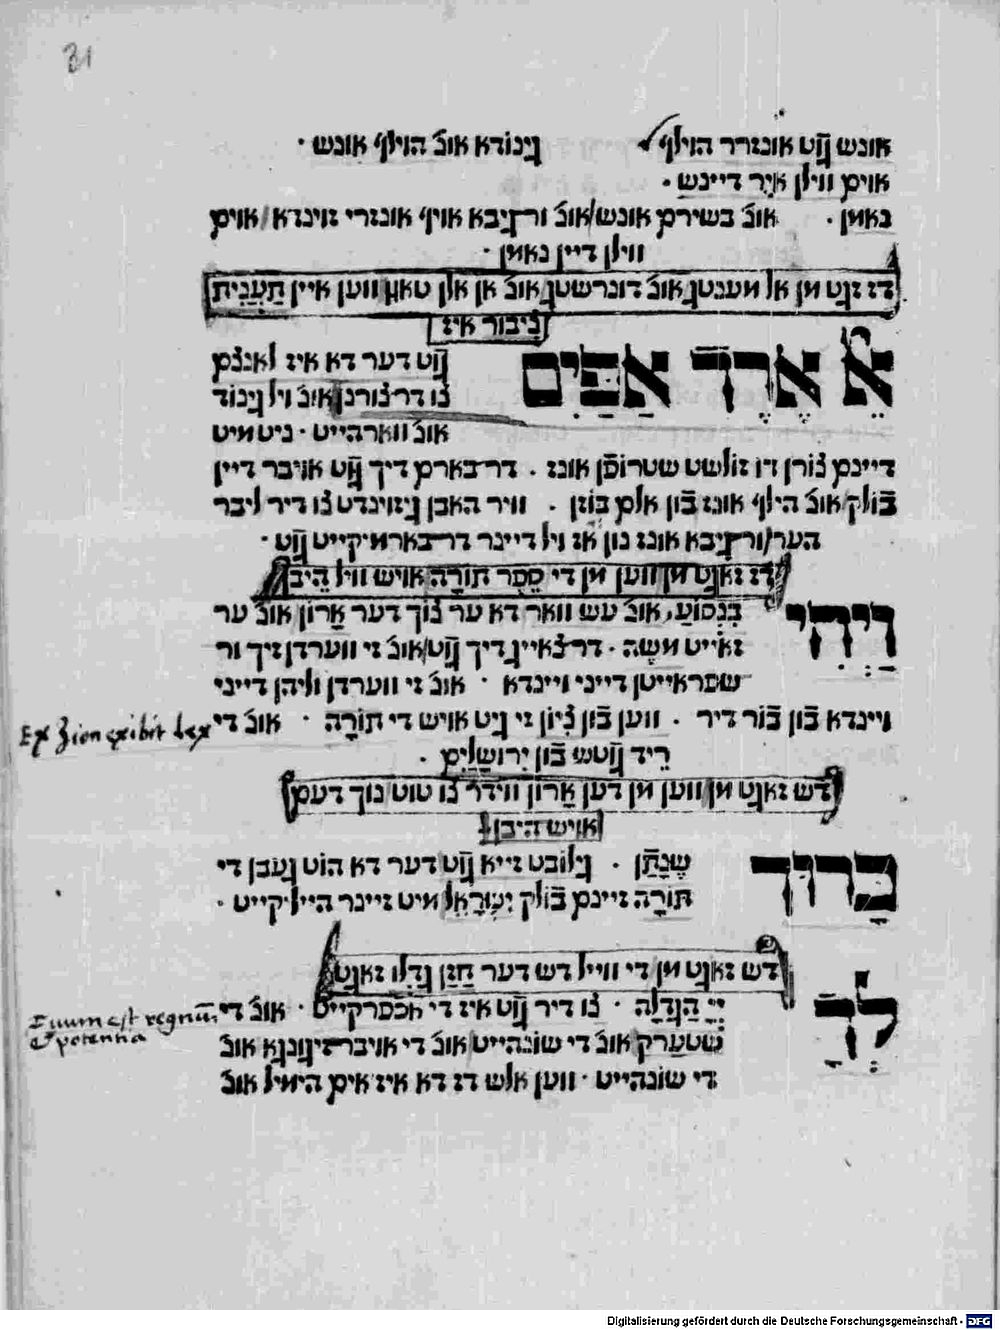 31
אונש גוט אונזרר הוילף גינודא אונ הוילף אונש ·
אוים ווילן איר דיינש ·
נאמן · אונ בשירם אונש/אונ ורגיבא אויף אונזרי זוינדא/אוים
ווילן דיין נאמן ·
דז זגט מן אל מענטג אונ דונרשטג אונ אן אלן טאג ווען איין תַּעֲנִית
צִיבור איז
אֵל אֶרֶךְ אַפַּיִם גוט דער דא איז לאנצם
צו דר צורנן אונ ויל גינוד
אונ ווארהייט · ניט מיט
דיינם צורן דו זולשט שטרופֿן אונז · דר בארם דיך גוט אויבר דיין
בֿולק/אונ הילף אונז בֿון אלם בוזן · וויר האבן גיזוינדט צו דיר ליבר
הער/ורגיבא אונז נון אז ויל דיינר דר בארמיקייט גוט ·
דז זאגט מן ווען מן די סֵפֶר תּוֹרָה אויש וויל היבן
וַיְהִי בִּנְסוֹעַ, אונ עש וואר דא ער צוך דער אָרוֹן אונ ער
זאייט משֶׁה · דר צאייג דיך גוט/אונ זי ווערדן זיך ור
שפראייטן דייני ויינדא · אונ זי ווערדן וליהן דייני
ויינדא בֿון בֿור דיר · ווען בֿון צִיוֹן זי גיט אויש די תּוֹרָה · אונ די
Ex Zion exibit lex
רֵיד גוטש בֿון יְרוּשָׁלַיִם ·
דש זאגט מן ווען מן דען אָרוֹן ווידר צו טוט נוך דעם
אויש היבן
בָּרוּךְ שֶׁנָּתַן · גילובט זייא גוט דער דא הוט געבן די
תּוֹרָה זיינם בֿולק יִשְׂרָאֵל מיט זיינר הייליקייט ·
דש זאגט מן די ווייל דש דער חַזָן גַּדְּלוּ זאגט
לְךָ יְיָ הַגְּדֻלָּה · צו דיר גוט איז די
אונ די
Tuum est regnum
& potentia
שטערק אונ די שונהייט אונ די אויבר זיגונגא אונ
די שונהייט · ווען אלש דז דא איז אים הימיל אונ
Digitalisierung gefördert durch die Deutsche Forschungsgemeinschaft - DFG